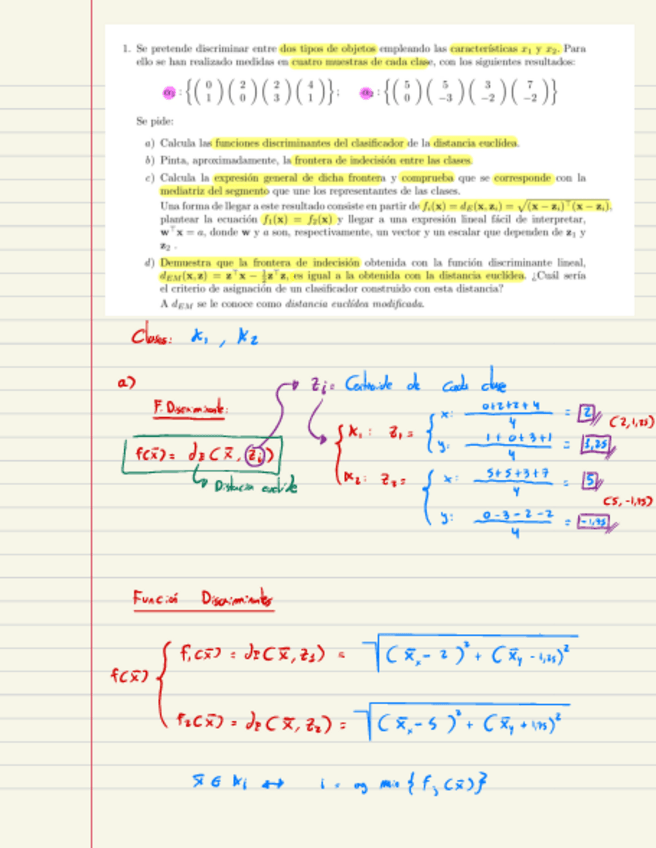 1. Se pretende discriminar entre dos tipos de objetos empleando las características x₁ y x₂. Para
ello se han realizado medidas en cuatro muestras de cada clase, con los siguientes resultados:
α₁ : {(0 1) (2 0) (2 3) (4 1)}; α₂ : {(5 0) (5 −3) (3 −2) (7 −2)}
Se pide:
a) Calcula las funciones discriminantes del clasificador de la distancia euclídea.
b) Pinta, aproximadamente, la frontera de indecisión entre las clases.
c) Calcula la expresión general de dicha frontera y comprueba que se corresponde con la
mediatriz del segmento que une los representantes de las clases.
Una forma de llegar a este resultado consiste en partir de fᵢ(x) = d_E(x, zᵢ) = √((x − zᵢ)ᵀ(x − zᵢ)),
plantear la ecuación f₁(x) = f₂(x) y llegar a una expresión lineal fácil de interpretar,
wᵀx = a, donde w y a son, respectivamente, un vector y un escalar que dependen de z₁ y
z₂ .
d) Demuestra que la frontera de indecisión obtenida con la función discriminante lineal,
d_EM(x, z) = zᵀx − ½zᵀz, es igual a la obtenida con la distancia euclídea. ¿Cuál sería
el criterio de asignación de un clasificador construido con esta distancia?
A d_EM se le conoce como distancia euclídea modificada.
Clases: α₁ , α₂
a) zᵢ = Centroide de cada clase
F. Discriminante:
f(x̄) = d_E(x̄, zᵢ)
Distancia euclide
α₁ : z₁ = { x: (0+2+2+4)/4 = 2
y: (1+0+3+1)/4 = 1,25
(2, 1,25)
α₂ : z₂ = { x: (5+5+3+7)/4 = 5
y: (0-3-2-2)/4 = -1,75
(5, -1,75)
Función Discriminantes
f(x̄) { f₁(x̄) = d_E(x̄, z₁) = √((x̄ₓ - 2)² + (x̄y - 1,25)²
f₂(x̄) = d_E(x̄, z₂) = √((x̄ₓ - 5)² + (x̄y + 1,75)²
x̄ ∈ αᵢ ↔ i = ag min {fⱼ(x̄)}